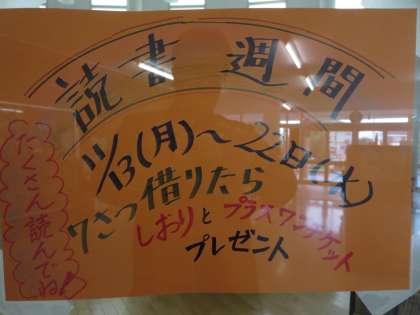 読書週間
11/13(月)〜22日(水)
7さつ借りたら
しおりとプラスワンチケット
プレゼント
たくさん読んでね!